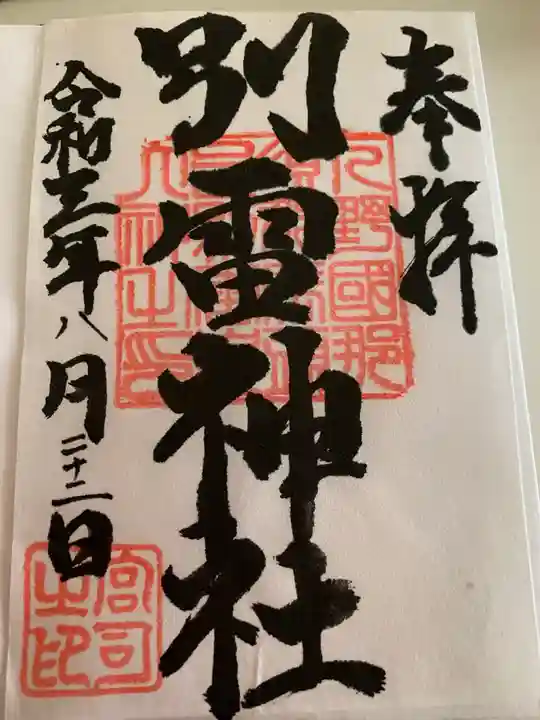 奉拝
別雷神社
令和三年八月二十二日
下野國那
宮司
之印